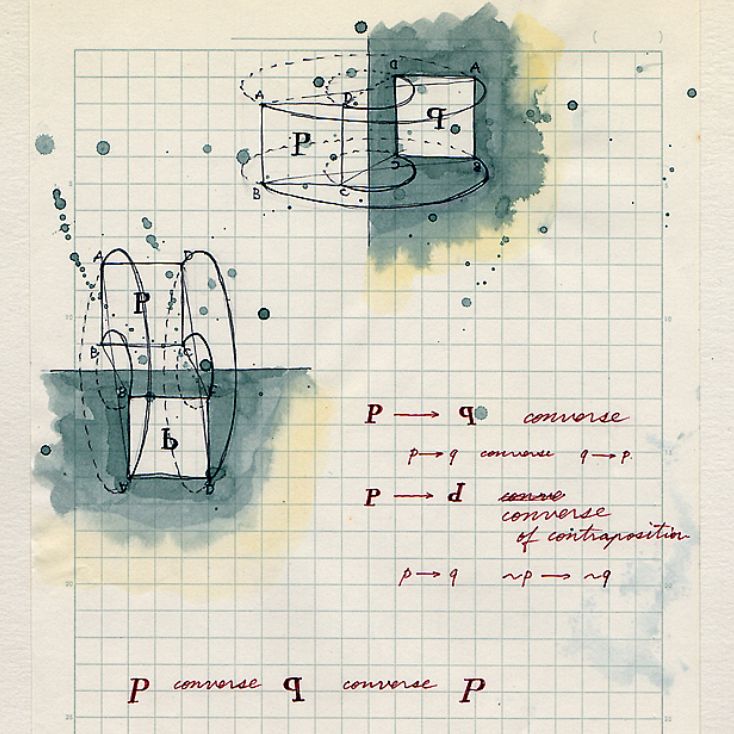 D A
A D
P q
B C C B
A D
P
B C
B C
d
A D
P → q converse
p → q converse q → p
P → d conve
converse
of contraposition
p → q ~p → ~q
P converse q converse P